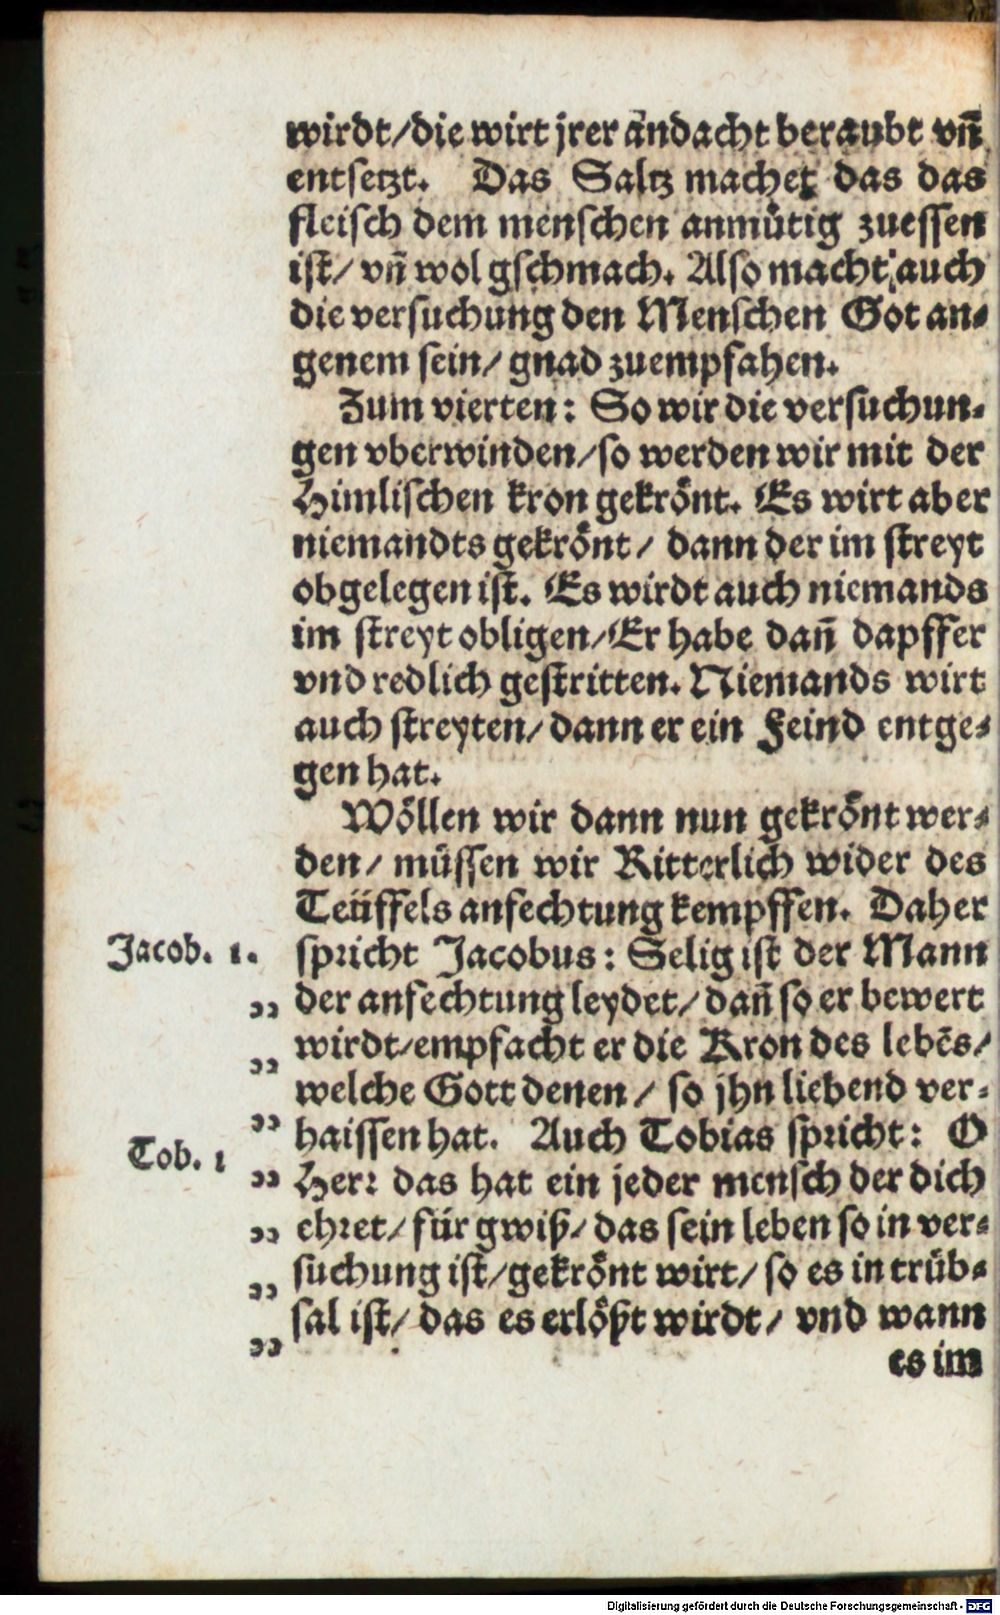 wirdt/die wirt jrer andacht beraubt vñ
entsetzt. Das Saltz machet das das
fleisch dem menschen anmütig zuessen
ist/ vñ wol gschmach. Also macht auch
die versuchung den Menschen Got an-
genem sein/ gnad zuempfahen.
Zum vierten: So wir die versuchun-
gen vberwinden/so werden wir mit der
Himlischen kron gekrönt. Es wirt aber
niemandts gekrönt/ dann der im streyt
obgelegen ist. Es wirdt auch niemands
im streyt obligen/Er habe dañ dapffer
vnd redlich gestritten. Niemands wirt
auch streyten/ dann er ein Feind entge-
gen hat.
Wöllen wir dann nun gekrönt wer-
den/ müssen wir Ritterlich wider des
Teüffels anfechtung kempffen. Daher
Jacob. 1. spricht Jacobus: Selig ist der Mann
„ der anfechtung leydet/ dañ so er bewert
„ wirdt/empfacht er die Kron des lebēs/
welche Gott denen/ so jhn liebend ver-
„ haissen hat. Auch Tobias spricht: O
Tob. 1 „ Herr das hat ein jeder mensch der dich
„ ehret/ für gwiß/ das sein leben so in ver-
„ suchung ist/gekrönt wirt/ so es in trüb-
sal ist/ das es erlößt wirdt/ vnd wann
„ es im
Digitalisierung gefördert durch die Deutsche Forschungsgemeinschaft - DFG